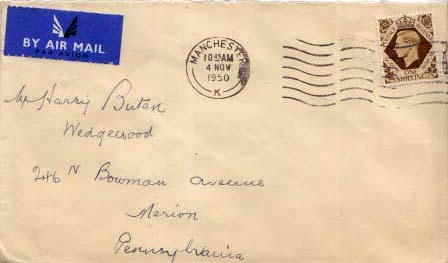 BY AIR MAIL
PAR AVION
MANCHESTER
10 45 AM
4 NOV
1950
K
ONE
SHILLING
Mr Harry Buten
Wedgewood
246 N Bowman avenue
Merion
Pennsylvania